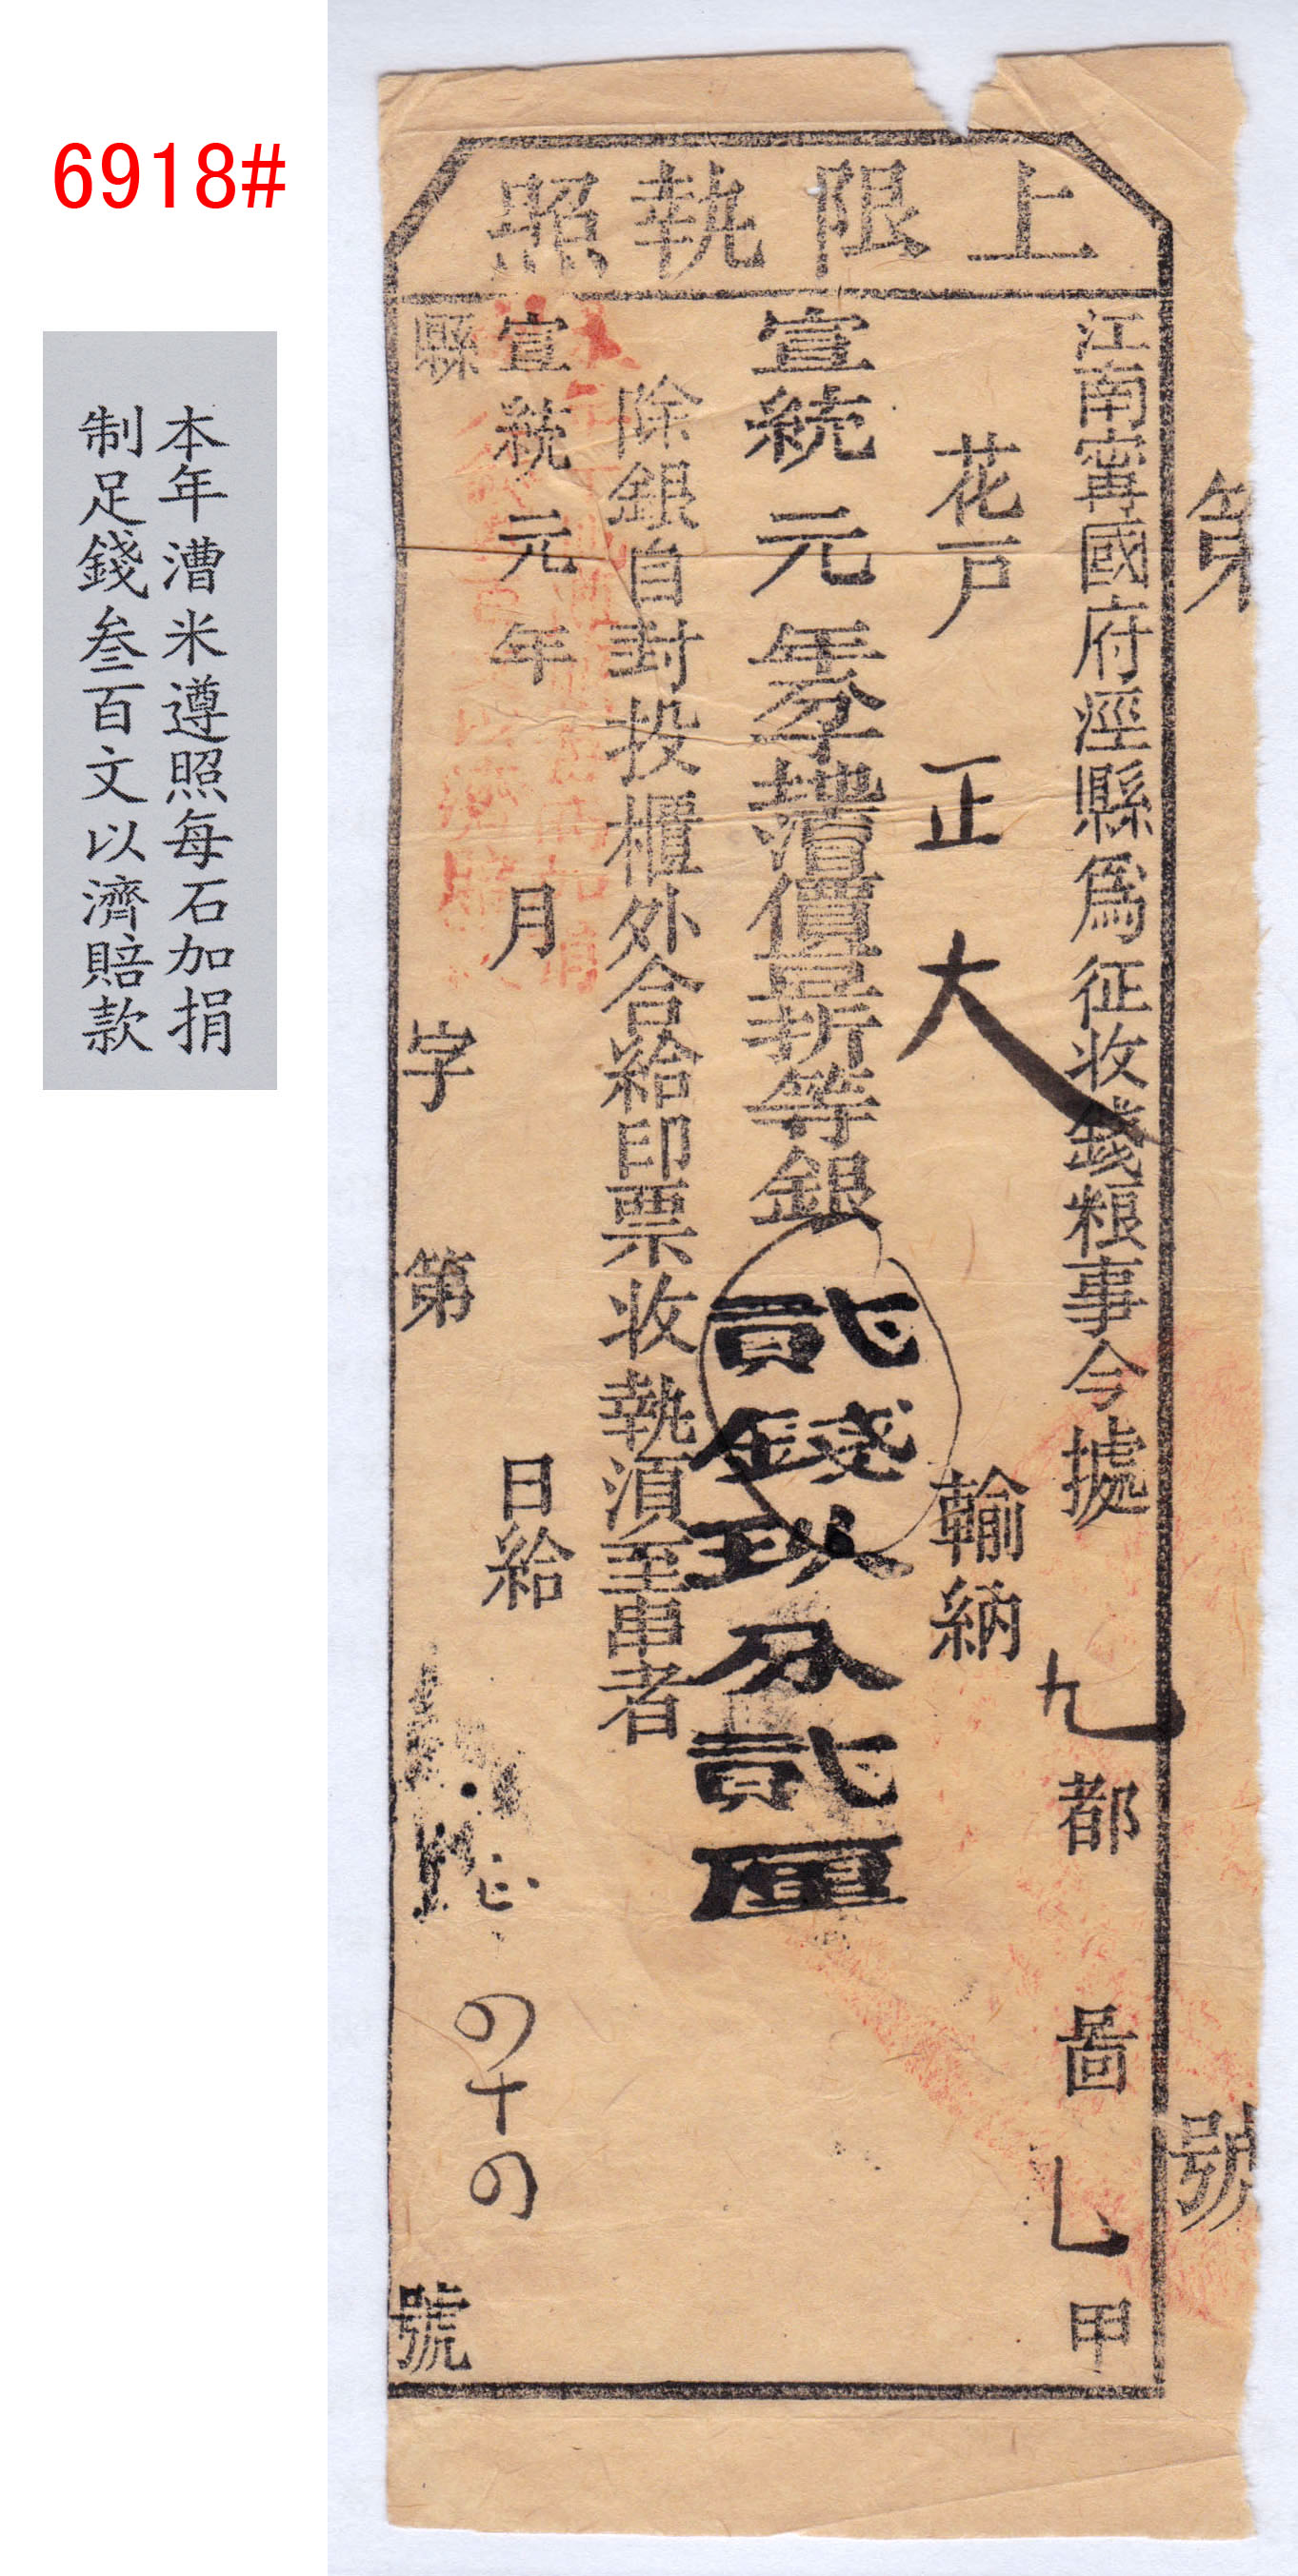 6918#
本年漕米遵照每石加捐
制足錢叁百文以濟賠款
上限執照
第 號
江南寧國府涇縣為征收錢粮事今據 九都 啚 乚甲
花戶 正大 輸納
宣統元年 等銀貳錢玖分貳厘
除銀自封投櫃外合給印票收執須至串者
宣統元年 月 日給
縣 字第 號